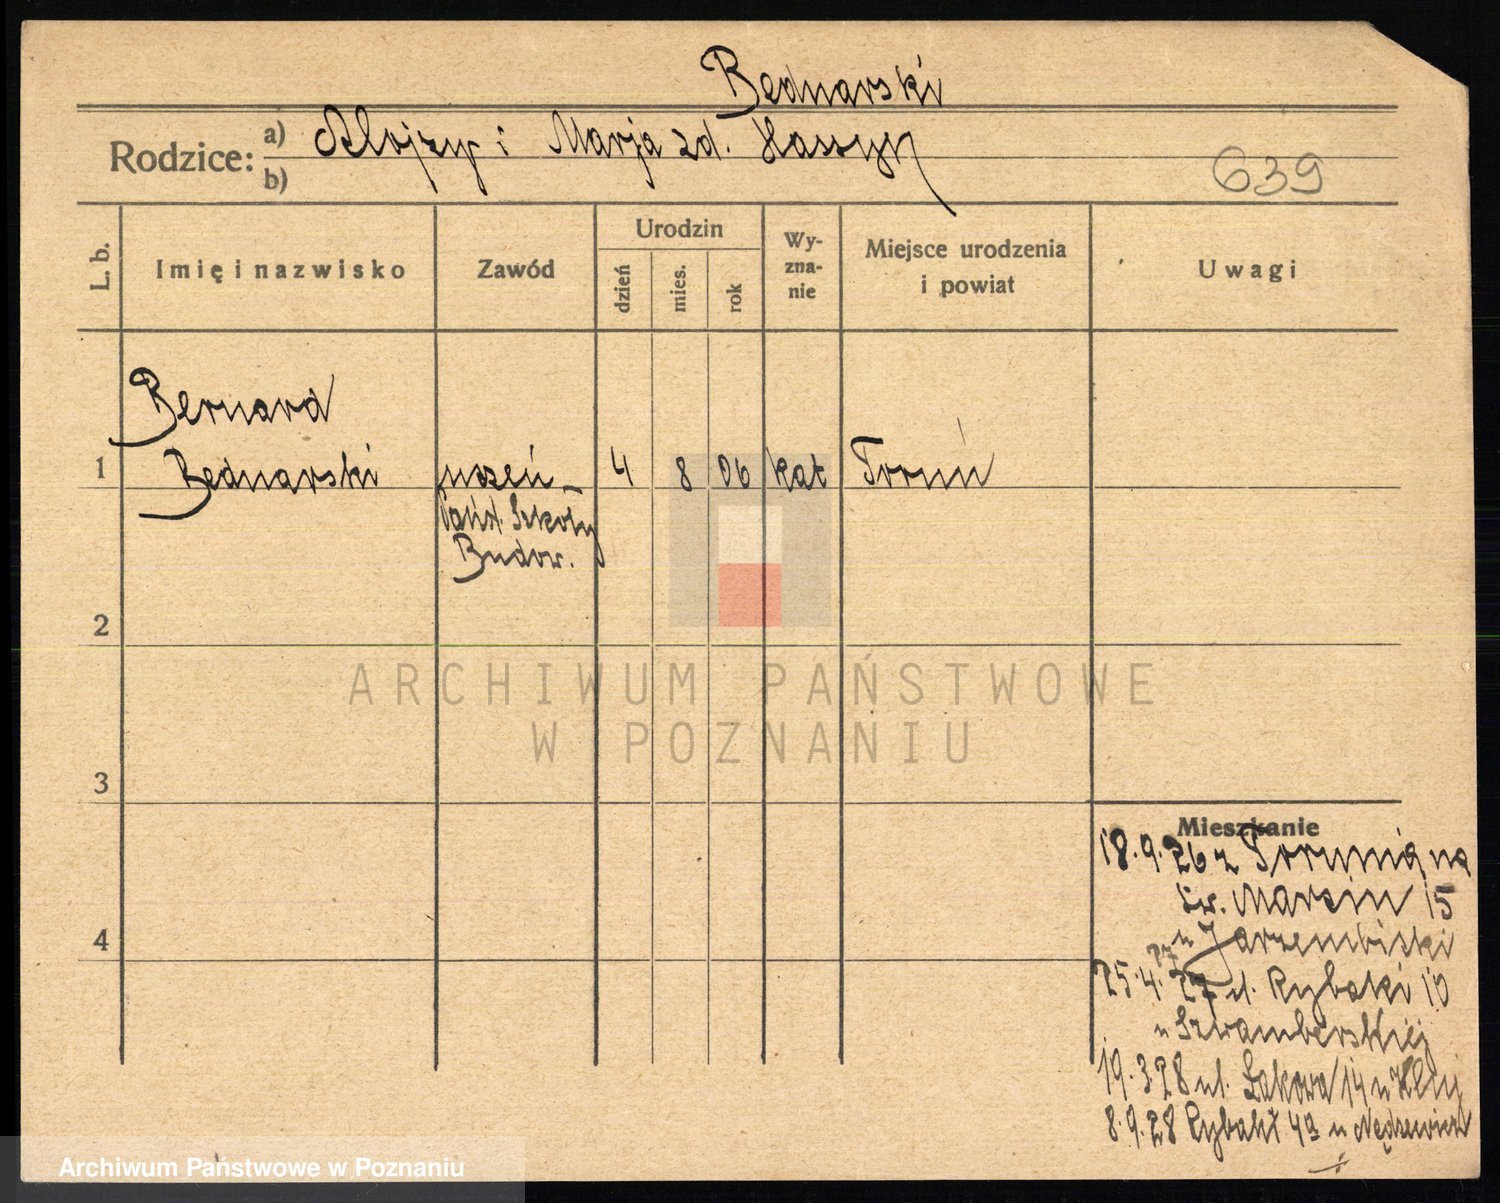 Bednarski
Rodzice: a) Alojzy i Marja zd. Hassyn
b)
639
L. b.
Imię i nazwisko
Zawód
Urodzin
dzień
mies.
rok
Wy-
zna-
nie
Miejsce urodzenia
i powiat
Uwagi
Bernard
1 Bednarski uczeń 4 8 06 kat Toruń
Państ. Szkoły
Budow.
2
3
4
ARCHIWUM PAŃSTWOWE
W POZNANIU
Mieszkanie
18.9.26 z Torunia na
św. Marcin 15
u Jarzembiski
27
25.4.27 ul. Rybaki 10
u Szwamberskiej
19.3.28 ul. Łąkowa 14 u
8.9.28 Rybaki 4a u
Archiwum Państwowe w Poznaniu